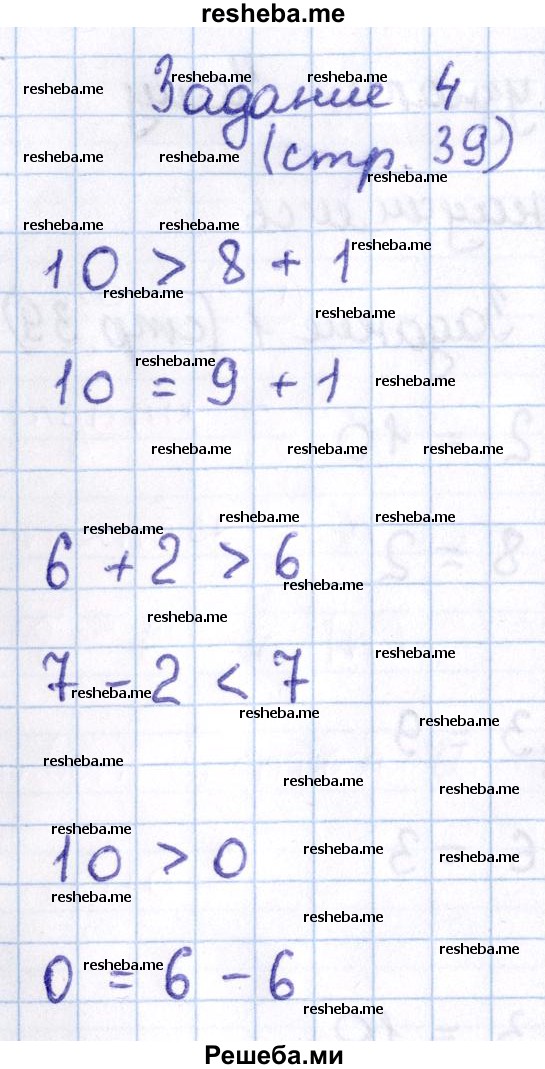 resheba.me
Задание 4
(стр. 39)
10 > 8 + 1
10 = 9 + 1
6 + 2 > 6
7 - 2 < 7
10 > 0
0 = 6 - 6
Решеба.ми